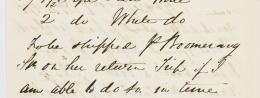 2 do White do
To be shipped p Boomerang
on her return Trip if I
am able to do so in time